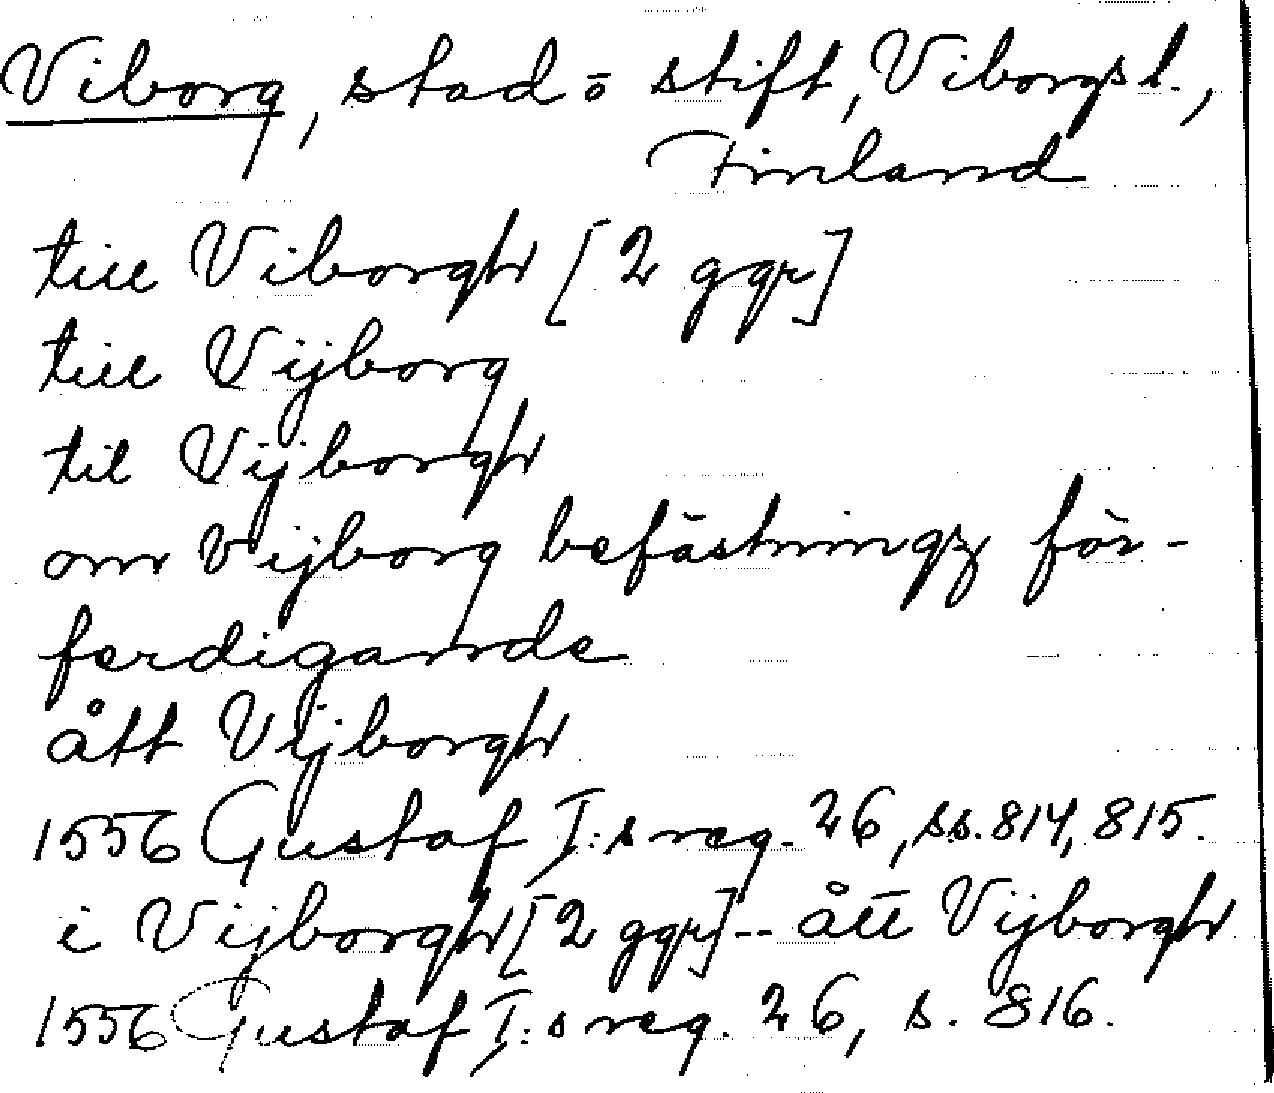 Viborg, stad o stift, Viborgs l.,
Finland
till Viborgh [2 ggr]
till Vijborg
til Vijborgh
om Vijborg befästningz för-
ferdigande
ått Vijborgh
1556 Gustaf I:s reg. 26, ss. 814, 815.
i Vijborgh [2 ggr] -- ått Vijborgh
1556 Gustaf I:s reg. 26, s. 816.